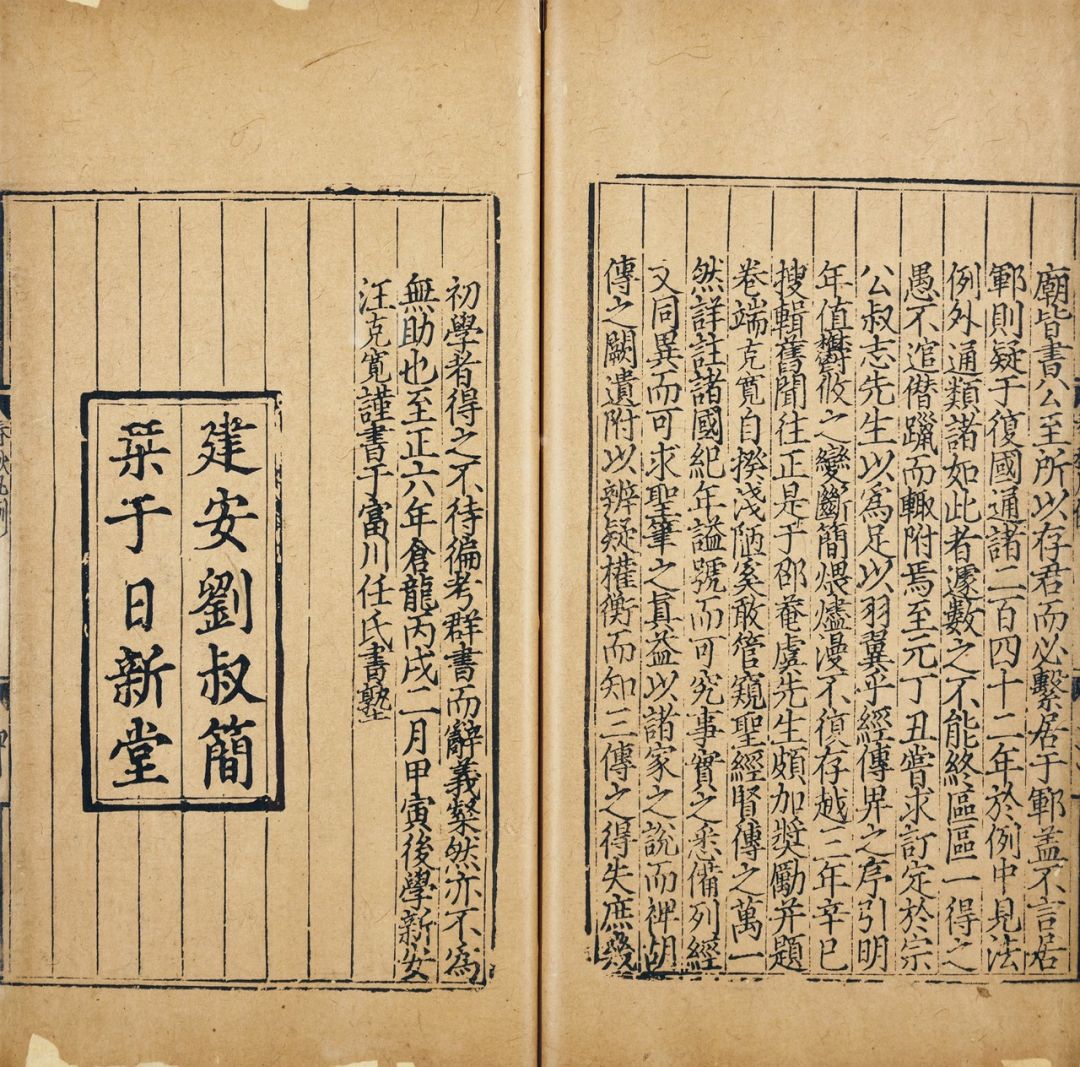 廟皆書公至所以存君而必繫居于鄆盖不言居
鄆則疑于復國通諸二百四十二年於例中見法
例外通類諸如此者遽數之不能終區區一得之
愚不逭僭躐而輙附焉至元丁丑嘗求訂定於宗
公叔志先生以為足以羽翼乎經傳畀之序引明
年值欝攸之變斷簡煨燼漫不復存越三年辛巳
搜輯舊聞往正是于邵菴虞先生頗加奬勵并題
卷端克寬自揆浅陋奚敢管窺聖經賢傳之萬一
然詳註諸國紀年諡號而可究事實之悉備列經
文同異而可求聖筆之真益以諸家之說而裨胡
傳之闕遺附以辨疑權衡而知三傳之得失庶幾
初學者得之不待徧考群書而辭義粲然亦不為
無助也至正六年倉龍丙戌二月甲寅後學新安
汪克寬謹書于富川任氏書塾
建安劉叔簡
栞于日新堂